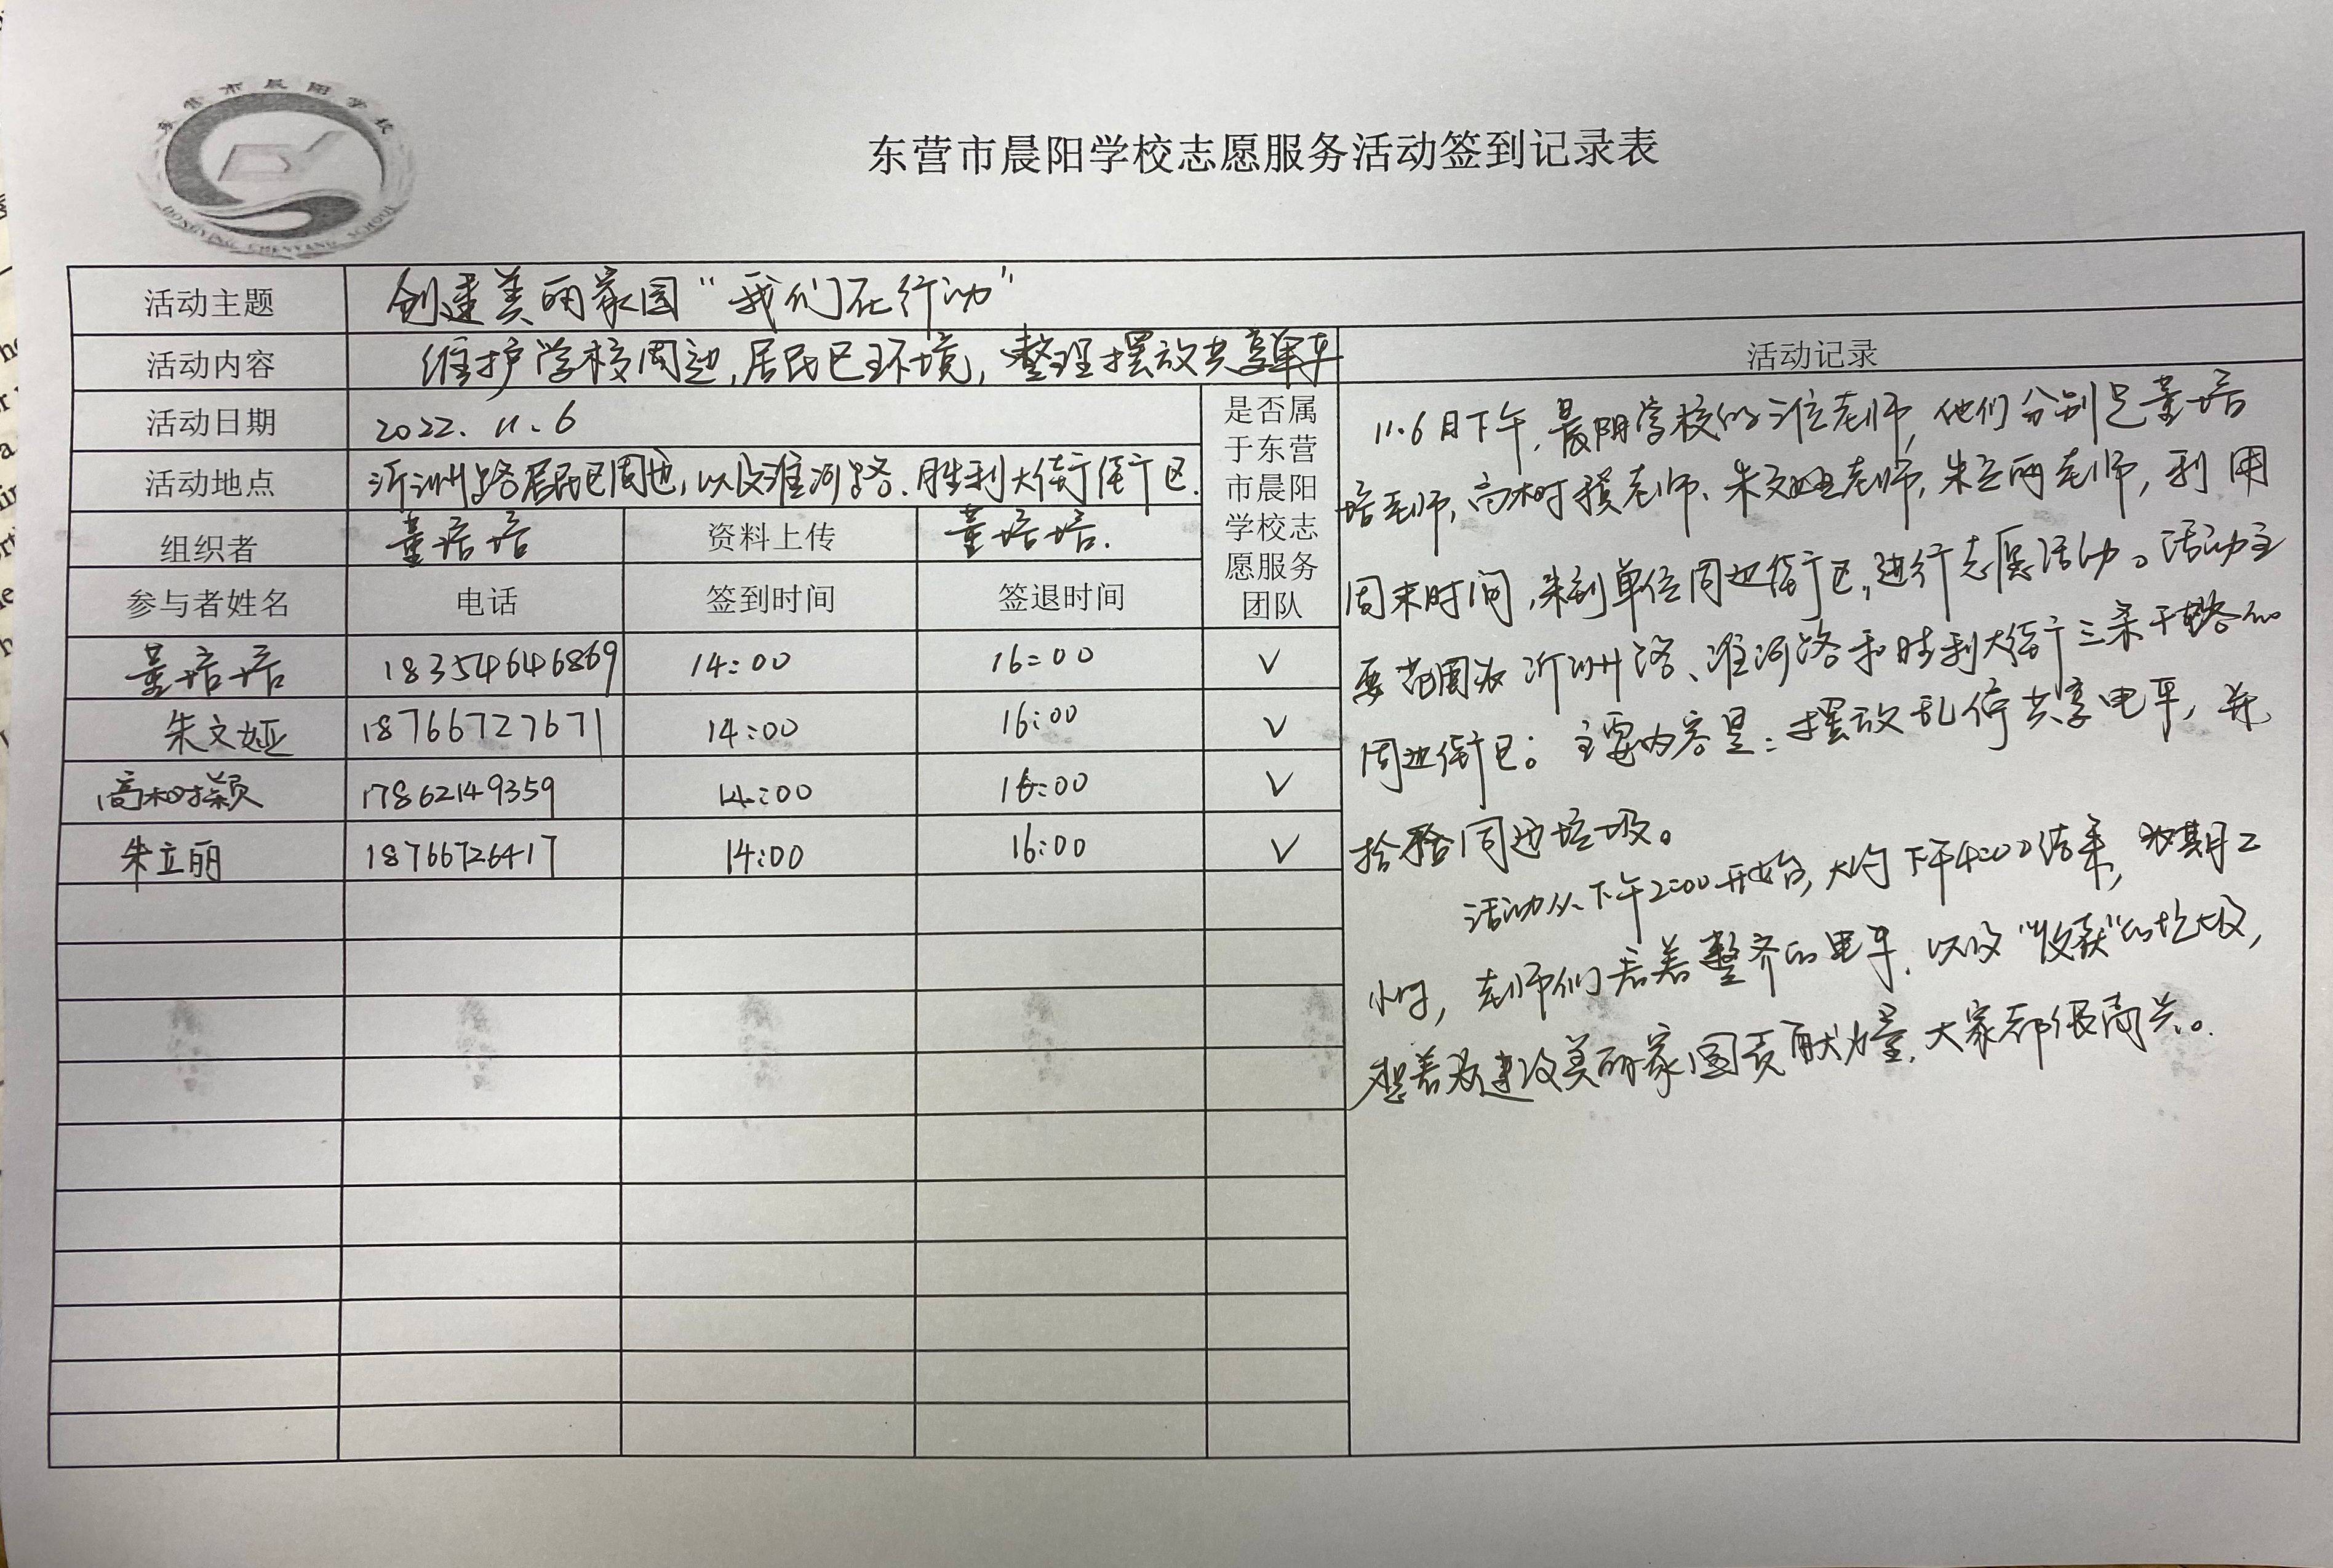 东营市晨阳学校
DONGYING CHENYANG SCHOOL
东营市晨阳学校志愿服务活动签到记录表
活动主题 创建美丽家园“我们在行动”
活动内容 维护学校周边,居民区环境,整理摆放共享单车
活动记录
活动日期 2022.11.6
活动地点 沂州路居民区周边,以及淮河路.胜利大街街区.
组织者 董培培 资料上传 董培培.
是否属
于东营
市晨阳
学校志
愿服务
团队
参与者姓名 电话 签到时间 签退时间
董培培 18354646869 14:00 16:00 √
朱文娅 18766727671 14:00 16:00 √
高树颖 17862149359 14:00 16:00 √
朱立丽 18766726417 14:00 16:00 √
11.6月下午,晨阳学校的三位老师,他们分别是董培
培老师,高树颖老师、朱文娅老师,朱立丽老师,利用
周末时间,来到单位周边街区,进行志愿活动。活动主
要范围为沂州路、淮河路和胜利大街三条干路的
周边街区。主要内容是:摆放乱停共享电车,并
捡拾周边垃圾。
活动从下午2:00开始,大约下午4:00结束,为期2
小时,老师们看着整齐的电车,以及“收获”的垃圾,
想着为建设美丽家园贡献力量,大家都很高兴。